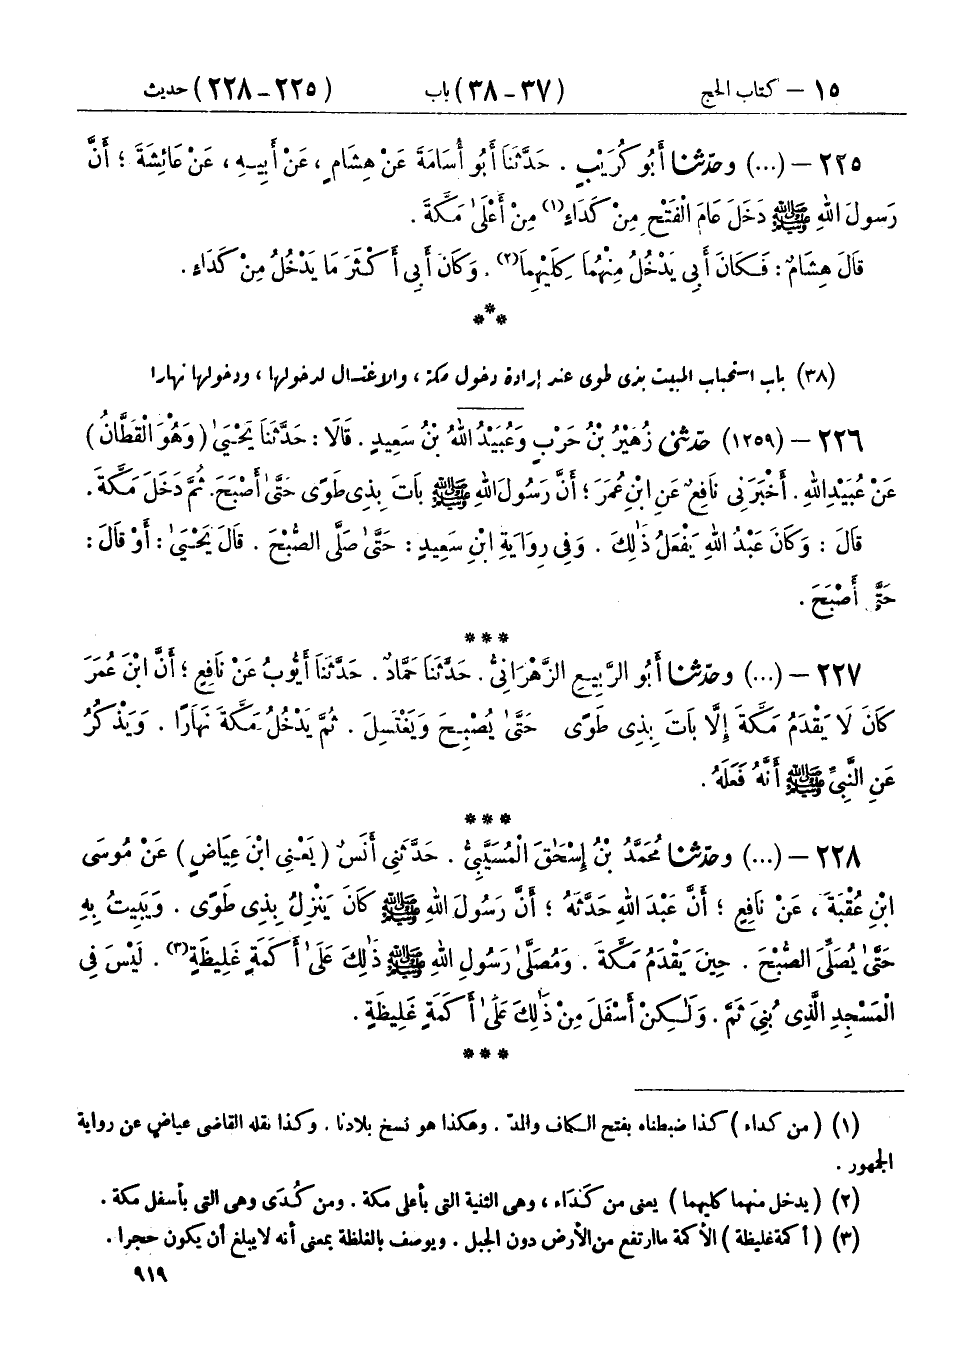 ١٥ – كتاب الحج (٣٧-٣٨) باب (٢٢٥-٢٢٨) حديث
٢٢٥ – (...) وحَدَّثَنَا أَبُو كُرَيْبٍ . حَدَّثَنَا أَبُو أُسَامَةَ عَنْ هِشَامٍ ، عَنْ أَبِيهِ ، عَنْ عَائِشَةَ ؛ أَنَّ
رَسُولَ اللهِ ﷺ دَخَلَ عَامَ الْفَتْحِ مِنْ كَدَاءٍ(١) مِنْ أَعْلَىٰ مَكَّةَ .
قَالَ هِشَامٌ : فَكَانَ أَبِي يَدْخُلُ مِنْهُمَا كِلَيْهِمَا(٢) . وَكَانَ أَبِي أَكْثَرَ مَا يَدْخُلُ مِنْ كَدَاءٍ .
***
(٣٨) باب استحباب المبيت بذى طوى عند إرادة دخول مكة ، والاغتسال لدخولها ، ودخولها نهارا
٢٢٦ – (١٢٥٩) حَدَّثَنِي زُهَيْرُ بْنُ حَرْبٍ وَعُبَيْدُ اللهِ بْنُ سَعِيدٍ . قَالَا : حَدَّثَنَا يَحْيَىٰ (وَهُوَ الْقَطَّانُ)
عَنْ عُبَيْدِاللهِ . أَخْبَرَنِي نَافِعٌ عَنِ ابْنِ عُمَرَ ؛ أَنَّ رَسُولَ اللهِ ﷺ بَاتَ بِذِي طَوًى حَتَّىٰ أَصْبَحَ. ثُمَّ دَخَلَ مَكَّةَ .
قَالَ : وَكَانَ عَبْدُ اللهِ يَفْعَلُ ذَٰلِكَ . وَفِي رِوَايَةِ ابْنِ سَعِيدٍ : حَتَّىٰ صَلَّى الصُّبْحَ . قَالَ يَحْيَىٰ : أَوْ قَالَ :
حَتَّى أَصْبَحَ .
***
٢٢٧ – (...) وحَدَّثَنَا أَبُو الرَّبِيعِ الزَّهْرَانِيُّ . حَدَّثَنَا حَمَّادٌ . حَدَّثَنَا أَيُّوبُ عَنْ نَافِعٍ ؛ أَنَّ ابْنَ عُمَرَ
كَانَ لَا يَقْدَمُ مَكَّةَ إِلَّا بَاتَ بِذِي طَوًى حَتَّىٰ يُصْبِحَ وَيَغْتَسِلَ . ثُمَّ يَدْخُلُ مَكَّةَ نَهَارًا . وَيَذْكُرُ
عَنِ النَّبِيِّ ﷺ أَنَّهُ فَعَلَهُ .
***
٢٢٨ – (...) وحَدَّثَنَا مُحَمَّدُ بْنُ إِسْحَٰقَ الْمُسَيَّبِيُّ . حَدَّثَنِي أَنَسٌ (يَعْنِي ابْنَ عِيَاضٍ) عَنْ مُوسَى
ابْنِ عُقْبَةَ ، عَنْ نَافِعٍ ؛ أَنَّ عَبْدَ اللهِ حَدَّثَهُ ؛ أَنَّ رَسُولَ اللهِ ﷺ كَانَ يَنْزِلُ بِذِي طَوًى . وَيَبِيتُ بِهِ
حَتَّىٰ يُصَلِّيَ الصُّبْحَ . حِينَ يَقْدَمُ مَكَّةَ . وَمُصَلَّىٰ رَسُولِ اللهِ ﷺ ذَٰلِكَ عَلَىٰ أَكَمَةٍ غَلِيظَةٍ(٣) . لَيْسَ فِي
الْمَسْجِدِ الَّذِي بُنِيَ ثَمَّ . وَلَٰكِنْ أَسْفَلَ مِنْ ذَٰلِكَ عَلَىٰ أَكَمَةٍ غَلِيظَةٍ .
***
(١) (من كداء) كذا ضبطناه بفتح الكاف والمد . وهكذا هو نسخ بلادنا . وكذا نقله القاضى عياض عن رواية
الجمهور .
(٢) (يدخل منهما كليهما) يعنى من كَدَاء ، وهى الثنية التى بأعلى مكة . ومن كُدَى وهى التى بأسفل مكة .
(٣) (أكمة غليظة) الأكمة ما ارتفع من الأرض دون الجبل . ويوصف بالغلظة بمعنى أنه لا يبلغ أن يكون حجرا .
٩١٩